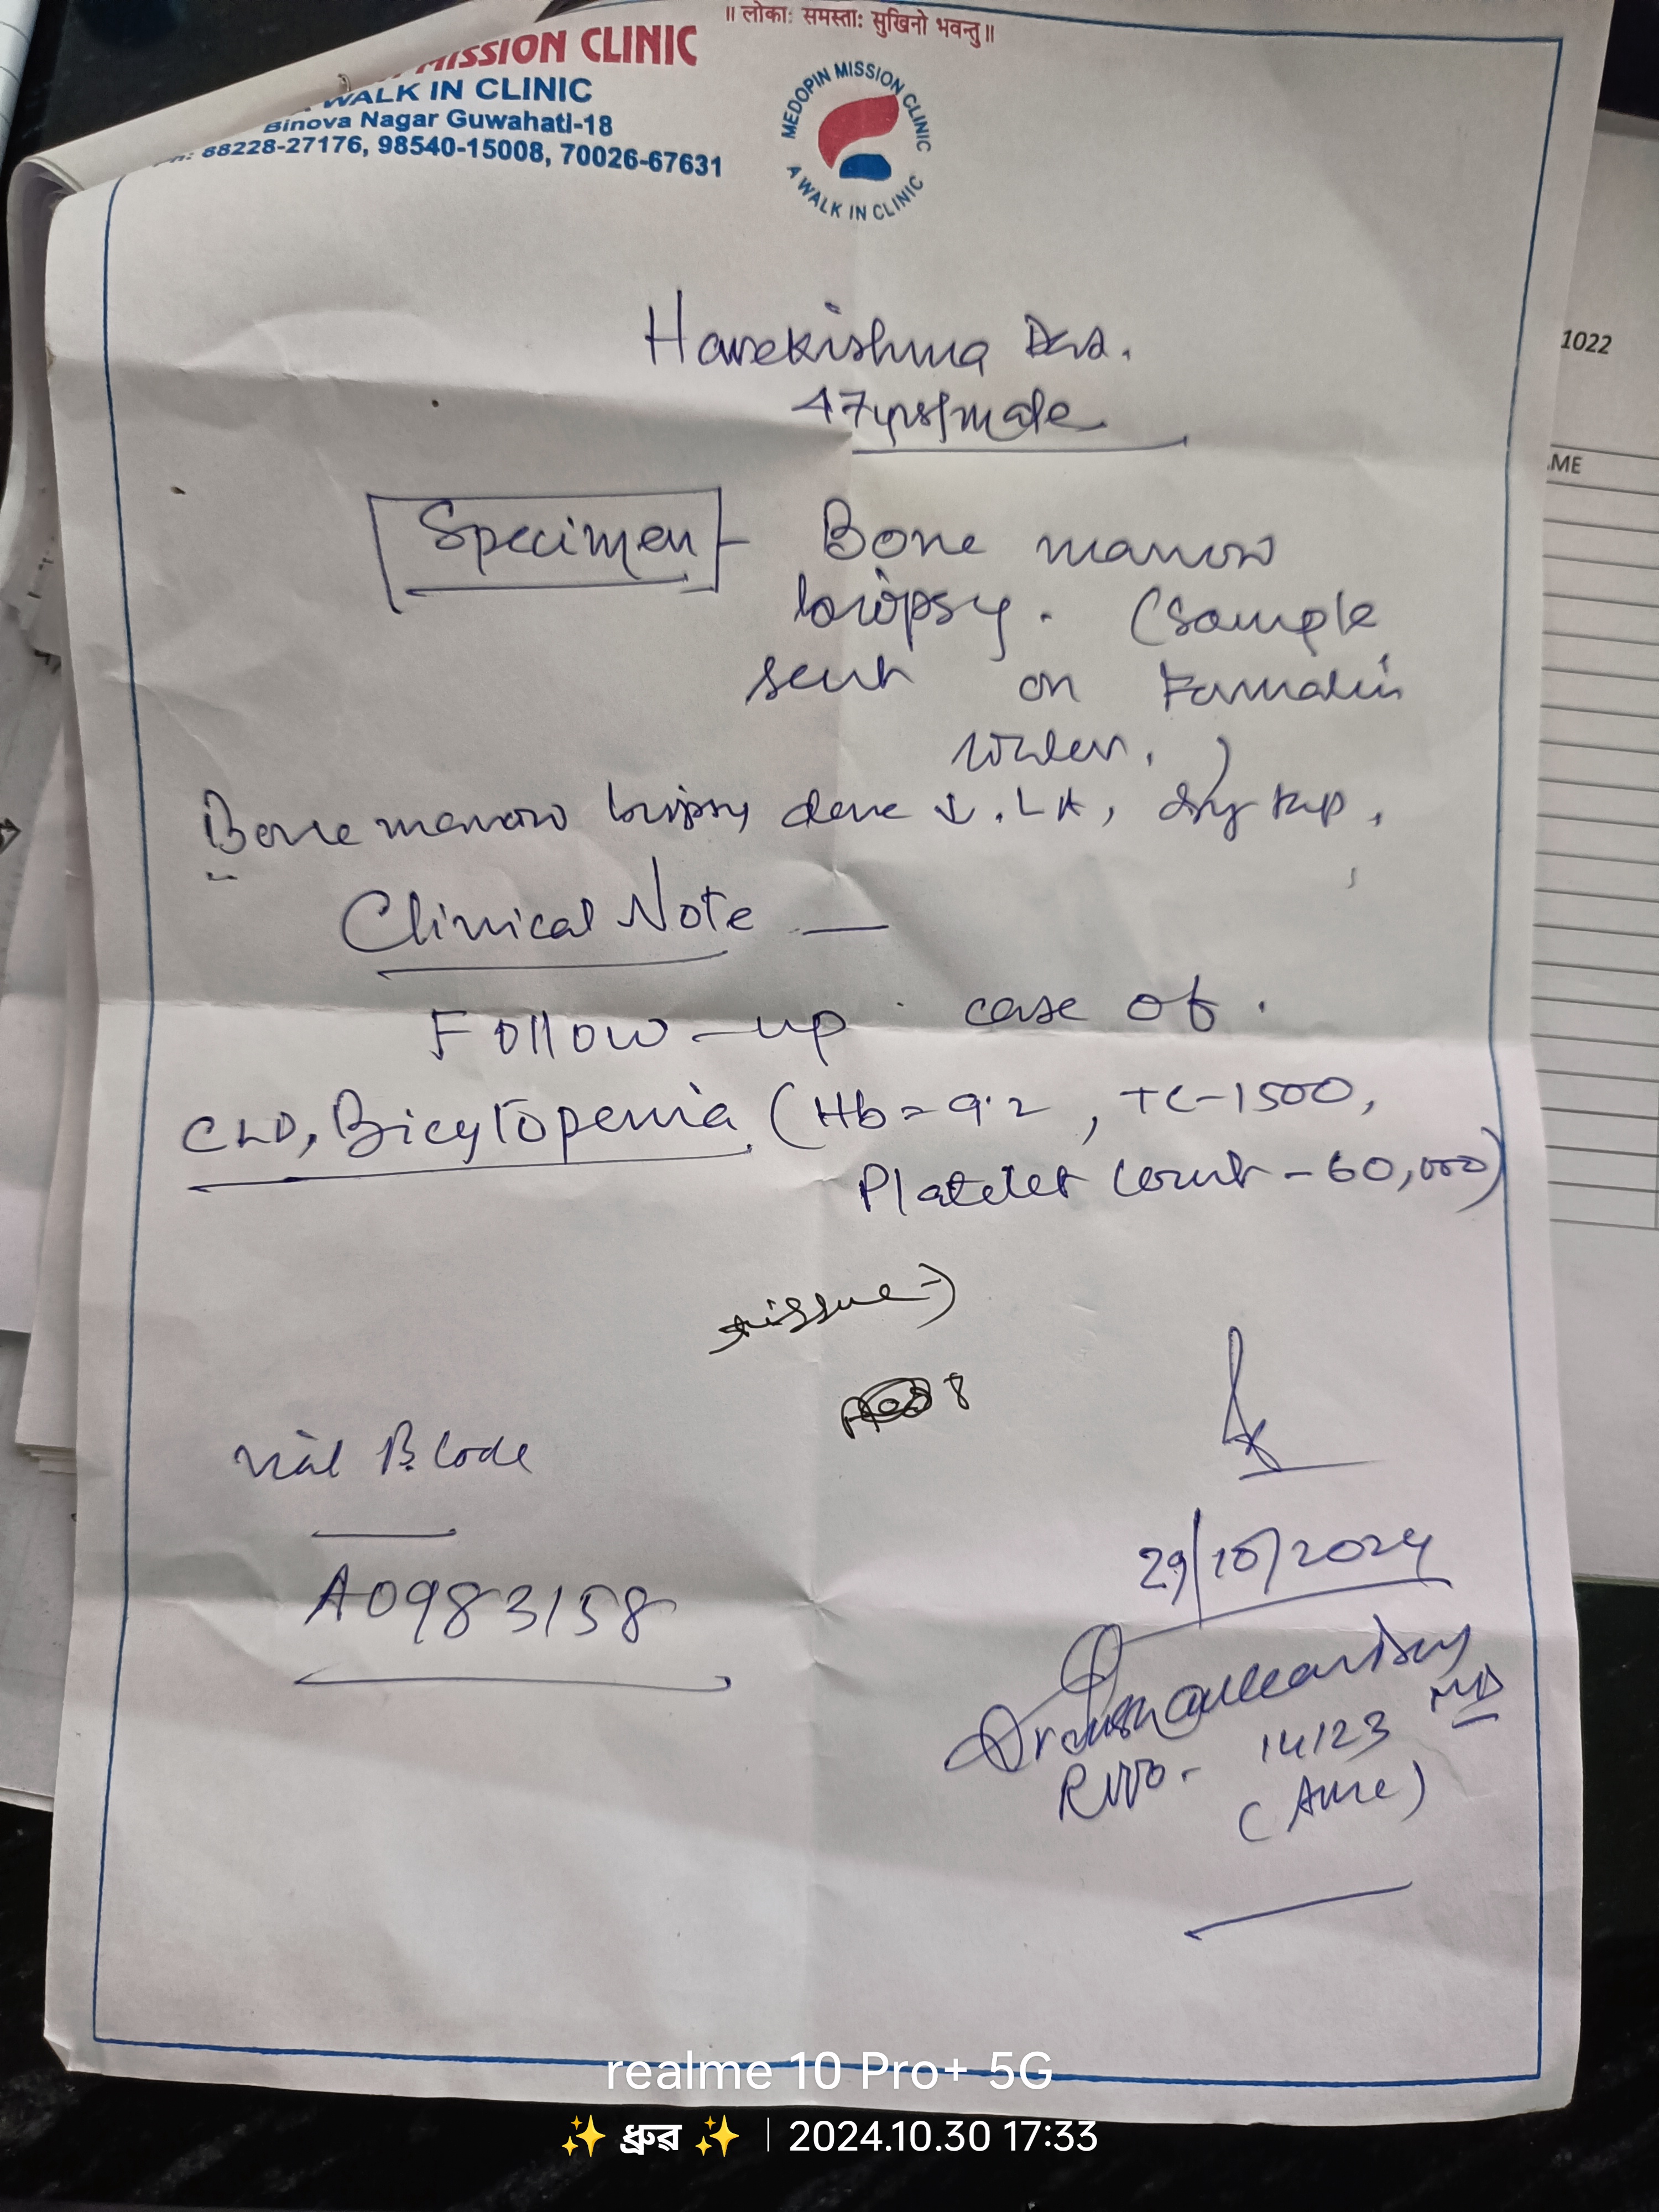 ॥ लोकाः समस्ताः सुखिनो भवन्तु॥
MISSION CLINIC
WALK IN CLINIC
Binova Nagar Guwahati-18
88228-27176, 98540-15008, 70026-67631
MEDOPIN MISSION CLINIC
A WALK IN CLINIC
Harekishna Das.
47yrs/male
1022
ME
Specimen - Bone marrow
biopsy. (Sample
sent on Formalin
Bone marrow biopsy done ↓ LA, dry tap.
Clinical Note —
Follow-up case of.
CLD, Bicytopenia (Hb = 9.2, TC-1500,
Platelet Count - 60,000)
tissue -)
Vial B.Code
A0983158
29/10/2024
MD
14123
realme 10 Pro+ 5G
✨ ধ্ৰুৱ ✨ | 2024.10.30 17:33